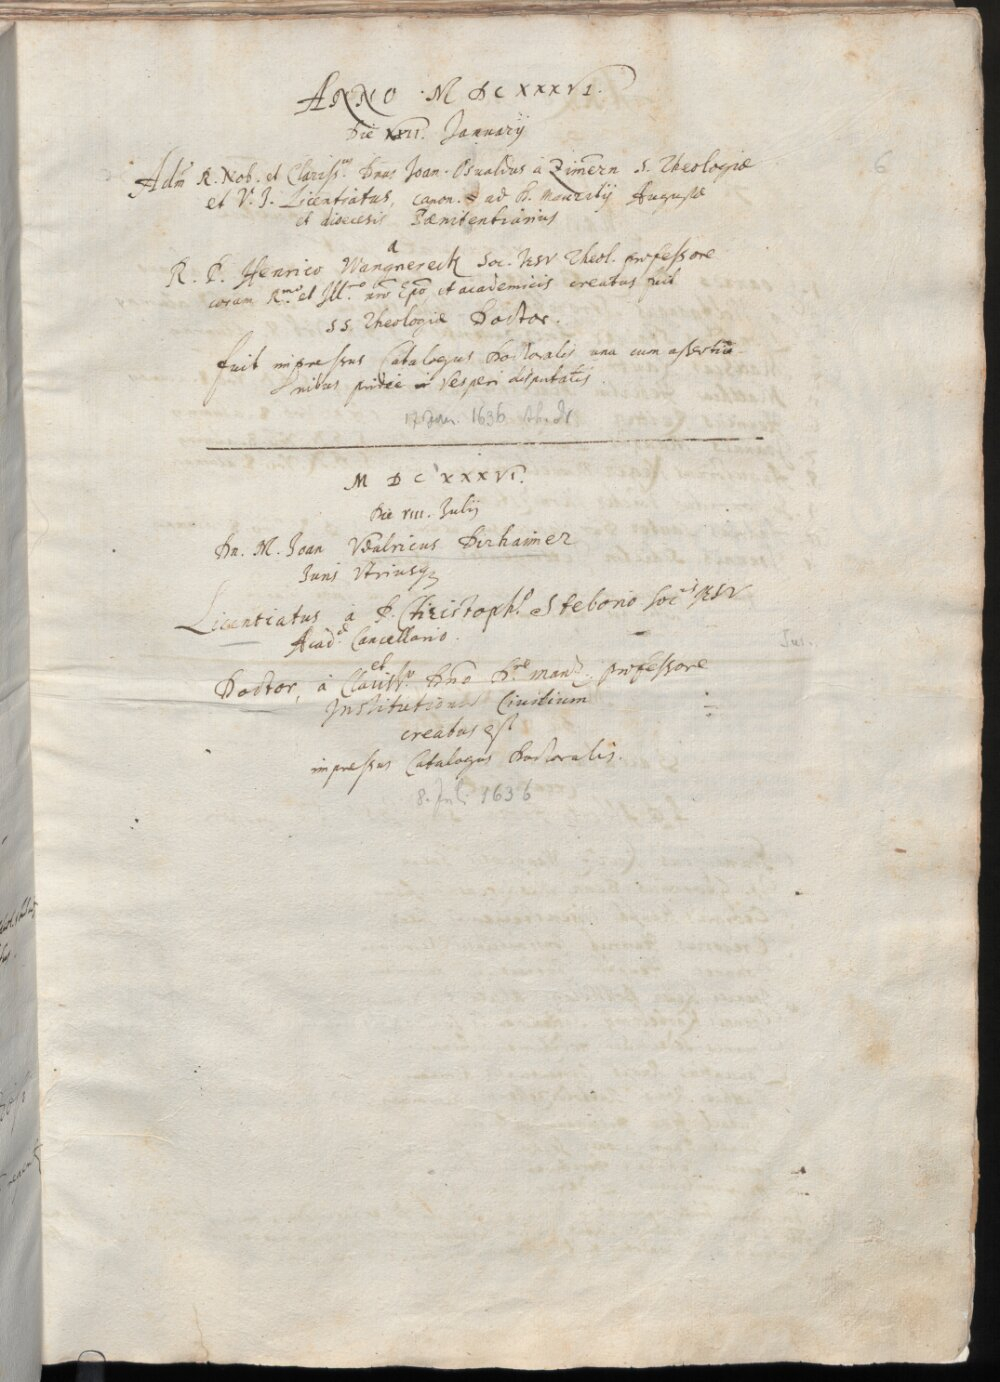 ANNO MDCXXXVI.
Die XVII. Januarij
Adm R. Nob. et Clariss.mus Dnus Joan. Osualdus à Zimern S. Theologiæ
et V. J. Licentiatus, canon. ad D. Mauritij Augustæ
et dioecesis Pænitentiarius
a
R. P. Henrico Wangnereck Soc. JESV Theol. professore
coram R.mo et Ill.mo nro Epo et academicis creatus fuit
SS. Theologiæ Doctor.
fuit impressus Catalogus Doctoralis una cum assertio-
nibus pridie Vesperi disputatis.
17 Jan. 1636
MDCXXXVI.
Die VIII. Julij
Dn. M. Joan Vdalricus Dirhaimer
Juris Vtriusq
Licentiatus à P. Christoph.o Steborio Soc.is JESV
Acad. Cancellario.
et
Doctor, à Clariss.o Dno D.re Manz professore
Institutionum Ciuilium
creatus est
impressus Catalogus Doctoralis.
8. Juli 1636
6
Jur.